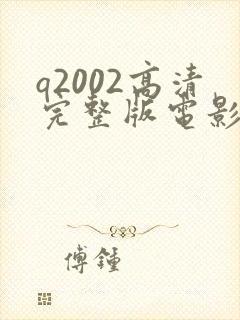 q2002高清
完整版電影
傅鍾